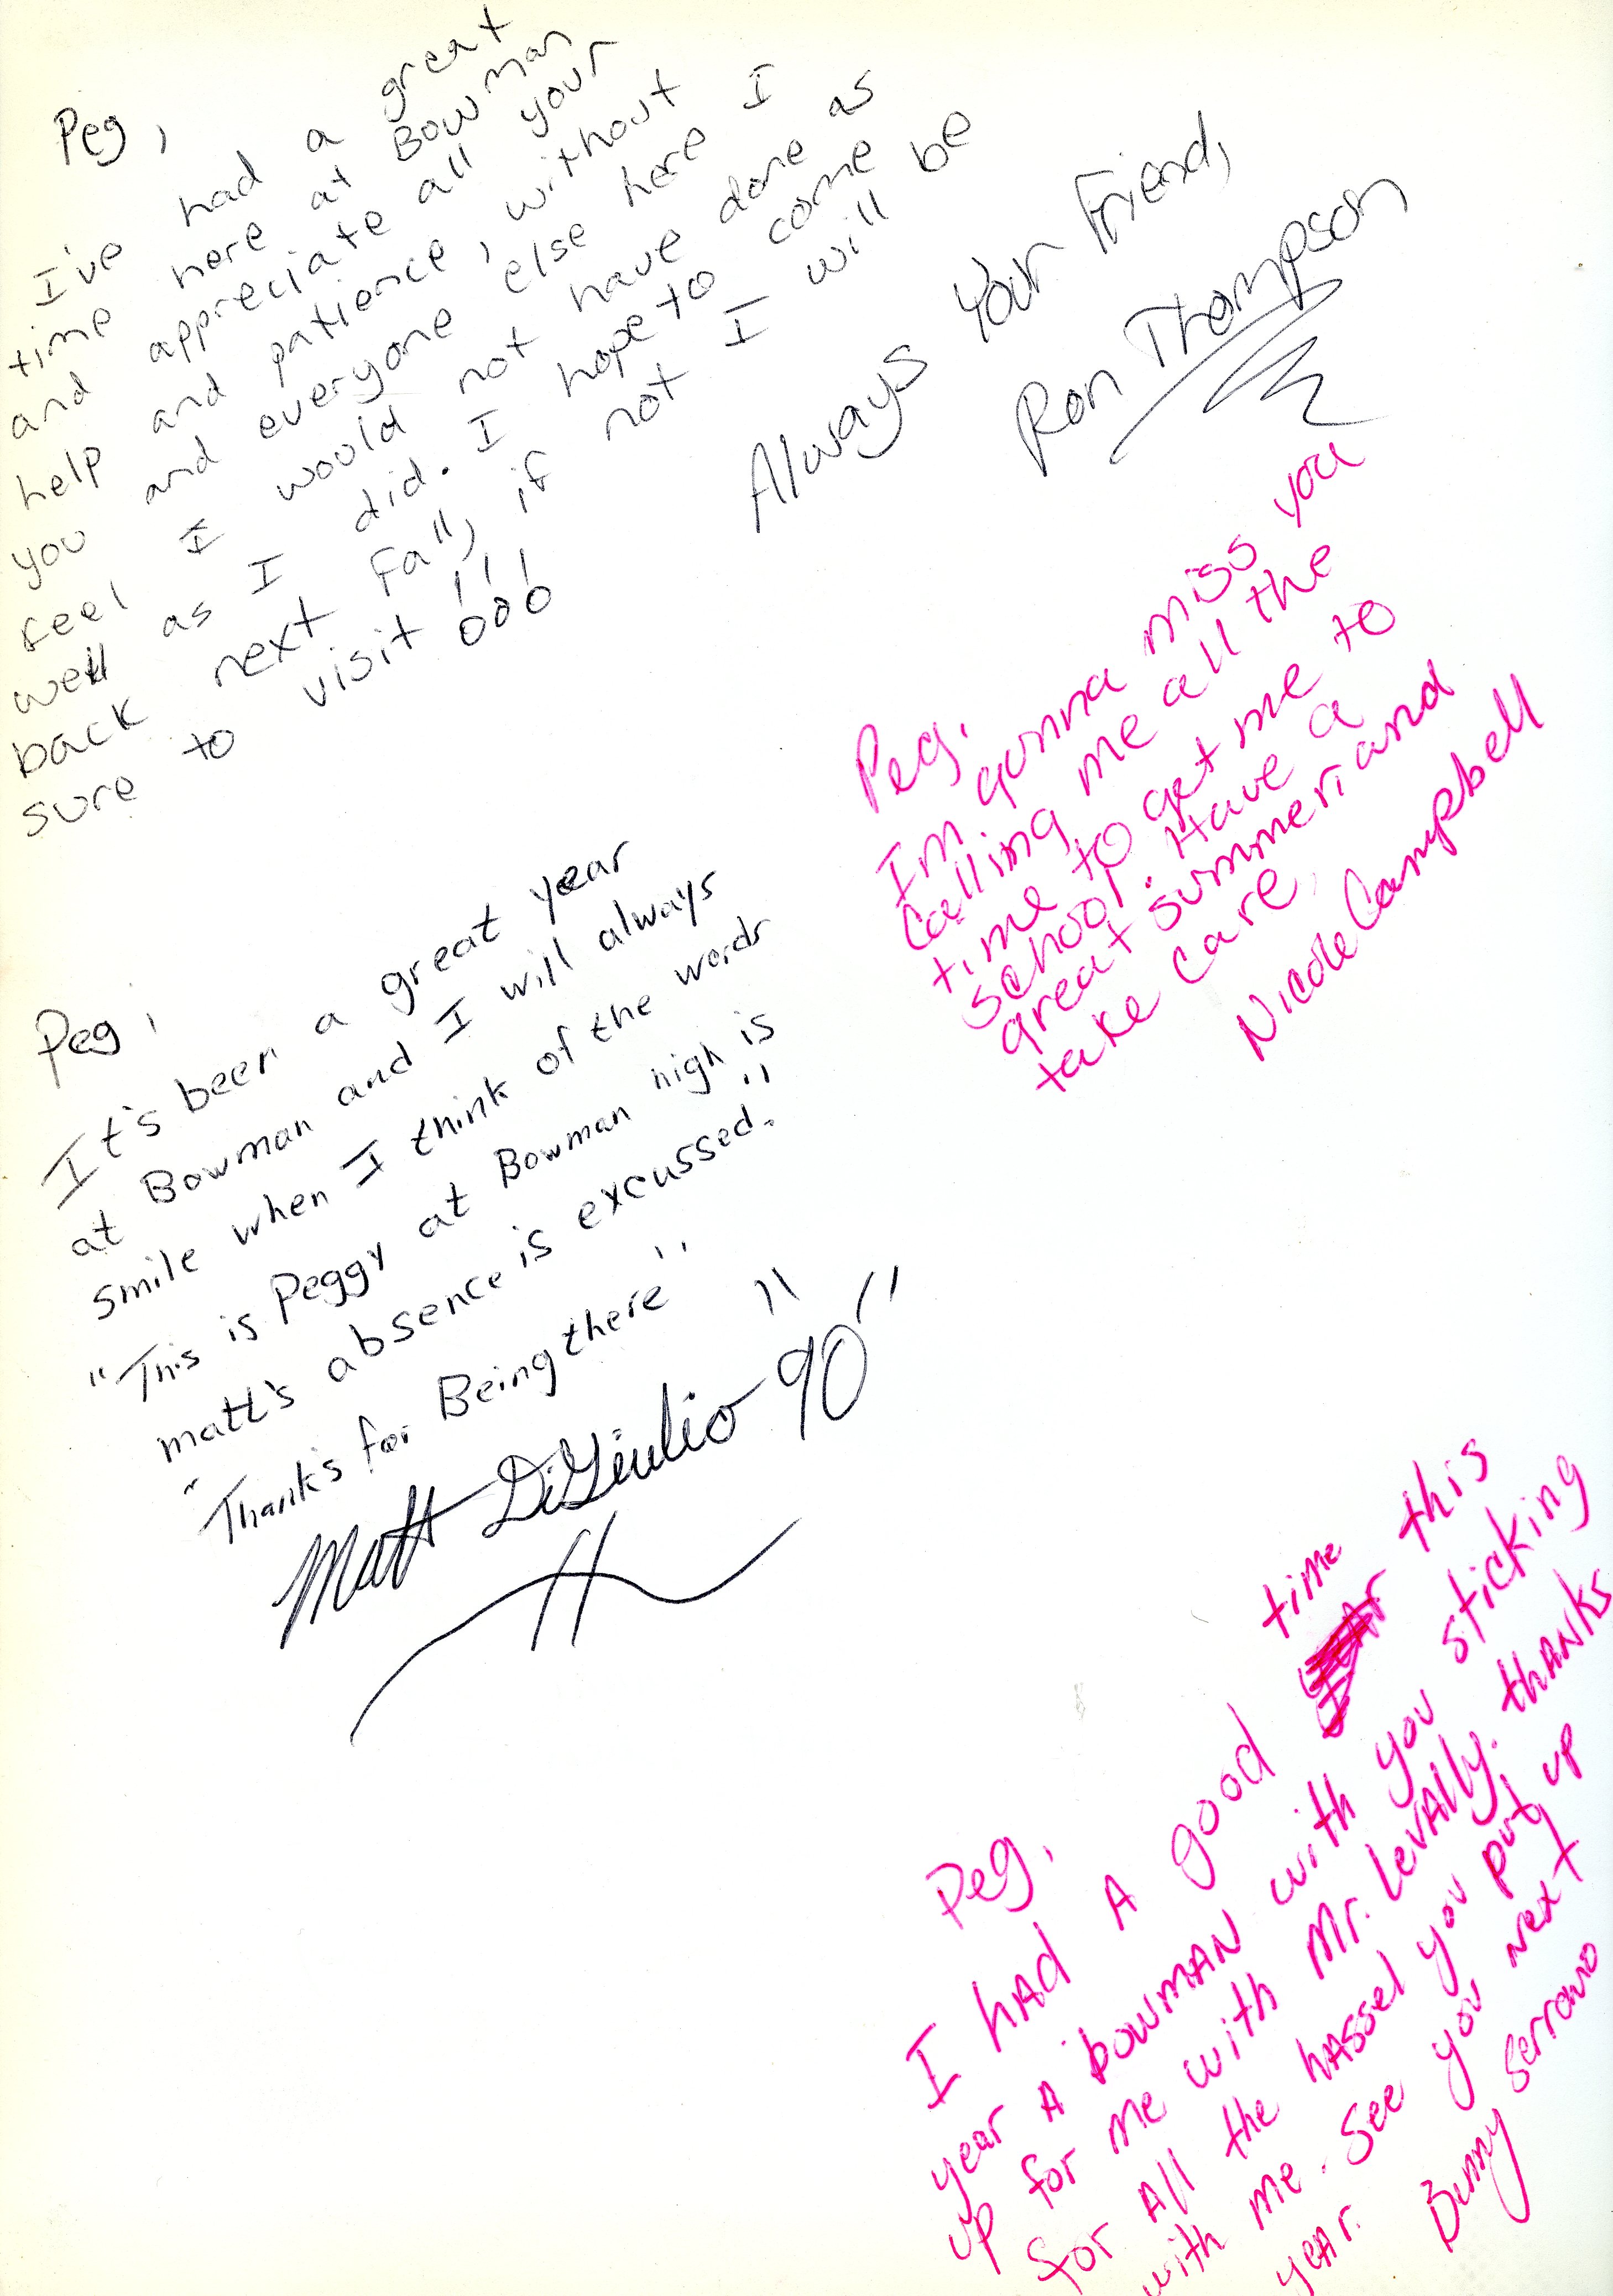 Peg,
I've had a great
time here at Bowman
and appreciate all your
help and patience, without
you and everyone else here I
feel I would not have done as
well as I did. I hope to come
back next Fall, if not I will be
sure to visit!!!
Always Your Friend,
Ron Thompson
Peg,
Im gonna miss you
Calling me all the
time to get me to
school. Have a
great summer, and
take care,
Nicole Campbell
Peg,
It's been a great year
at Bowman and I will always
smile when I think of the words
"This is Peggy at Bowman high is
matt's absence is excussed."
"Thanks for Being there"
Matt DiGiulio "90"
Peg,
I hAD A good time this
year A bowmAN with you sticking
up for me with Mr. LevAlly. thANks
for All the hAssel you put up
with me. See you next
yeAr. Bunny Serrano